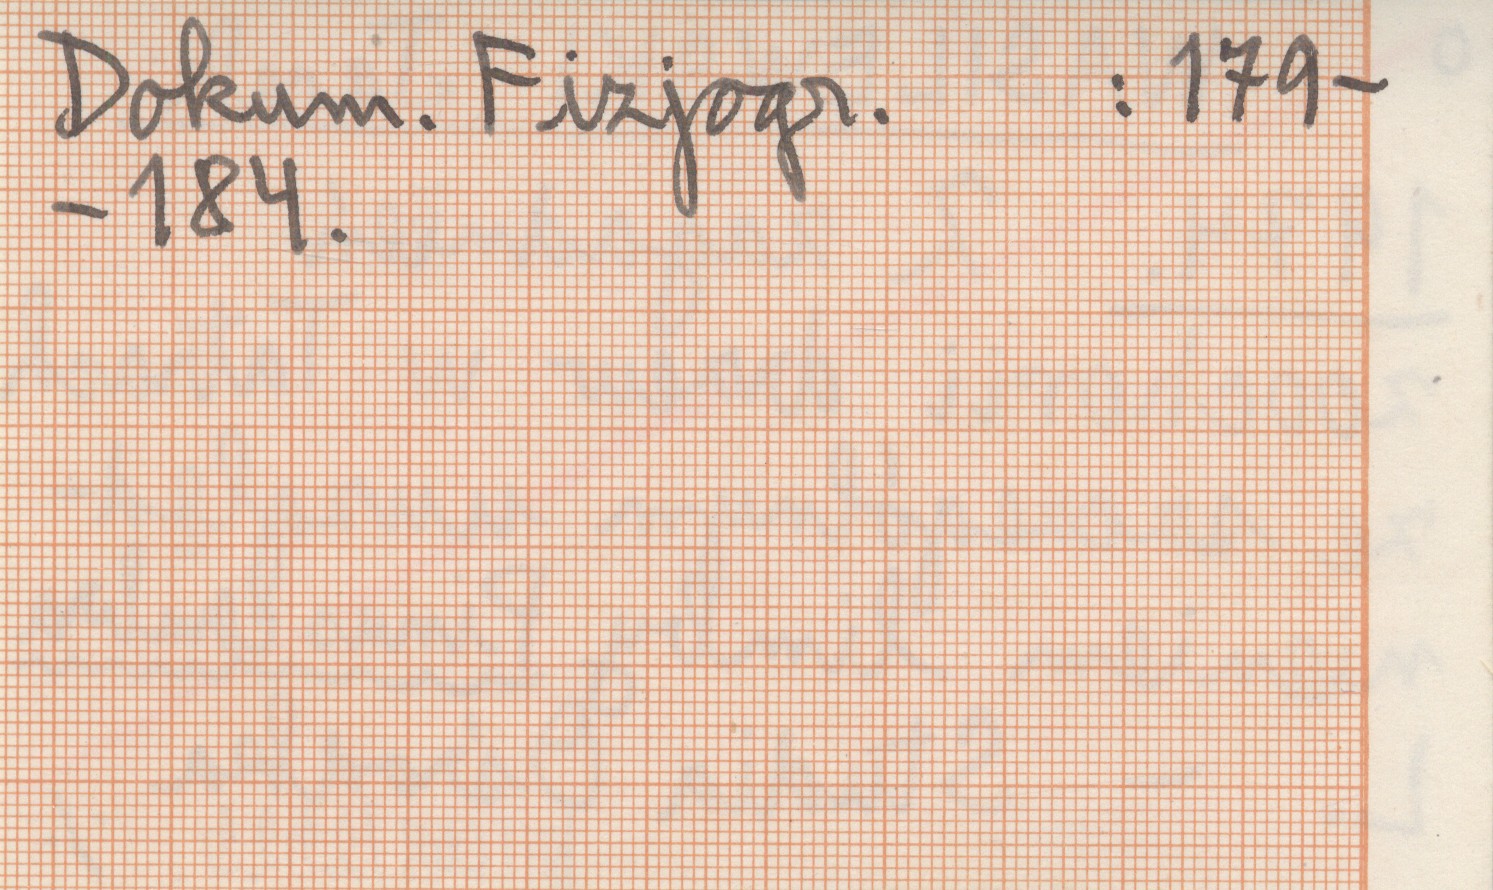 Dokum. Fizjogr. : 179-
-184.